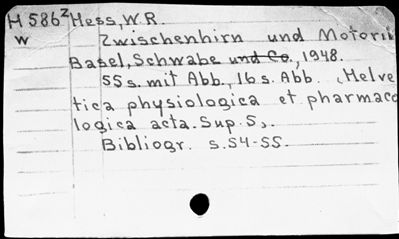 H586z Hess, W.R.
w Zwischenhirn und Motorik
Basel, Schwabe und Co., 1948.
55 s. mit Abb., 16 s. Abb. (Helve
tica physiologica et pharmaco
logica acta. Sup. 5).
Bibliogr. s.54-55.